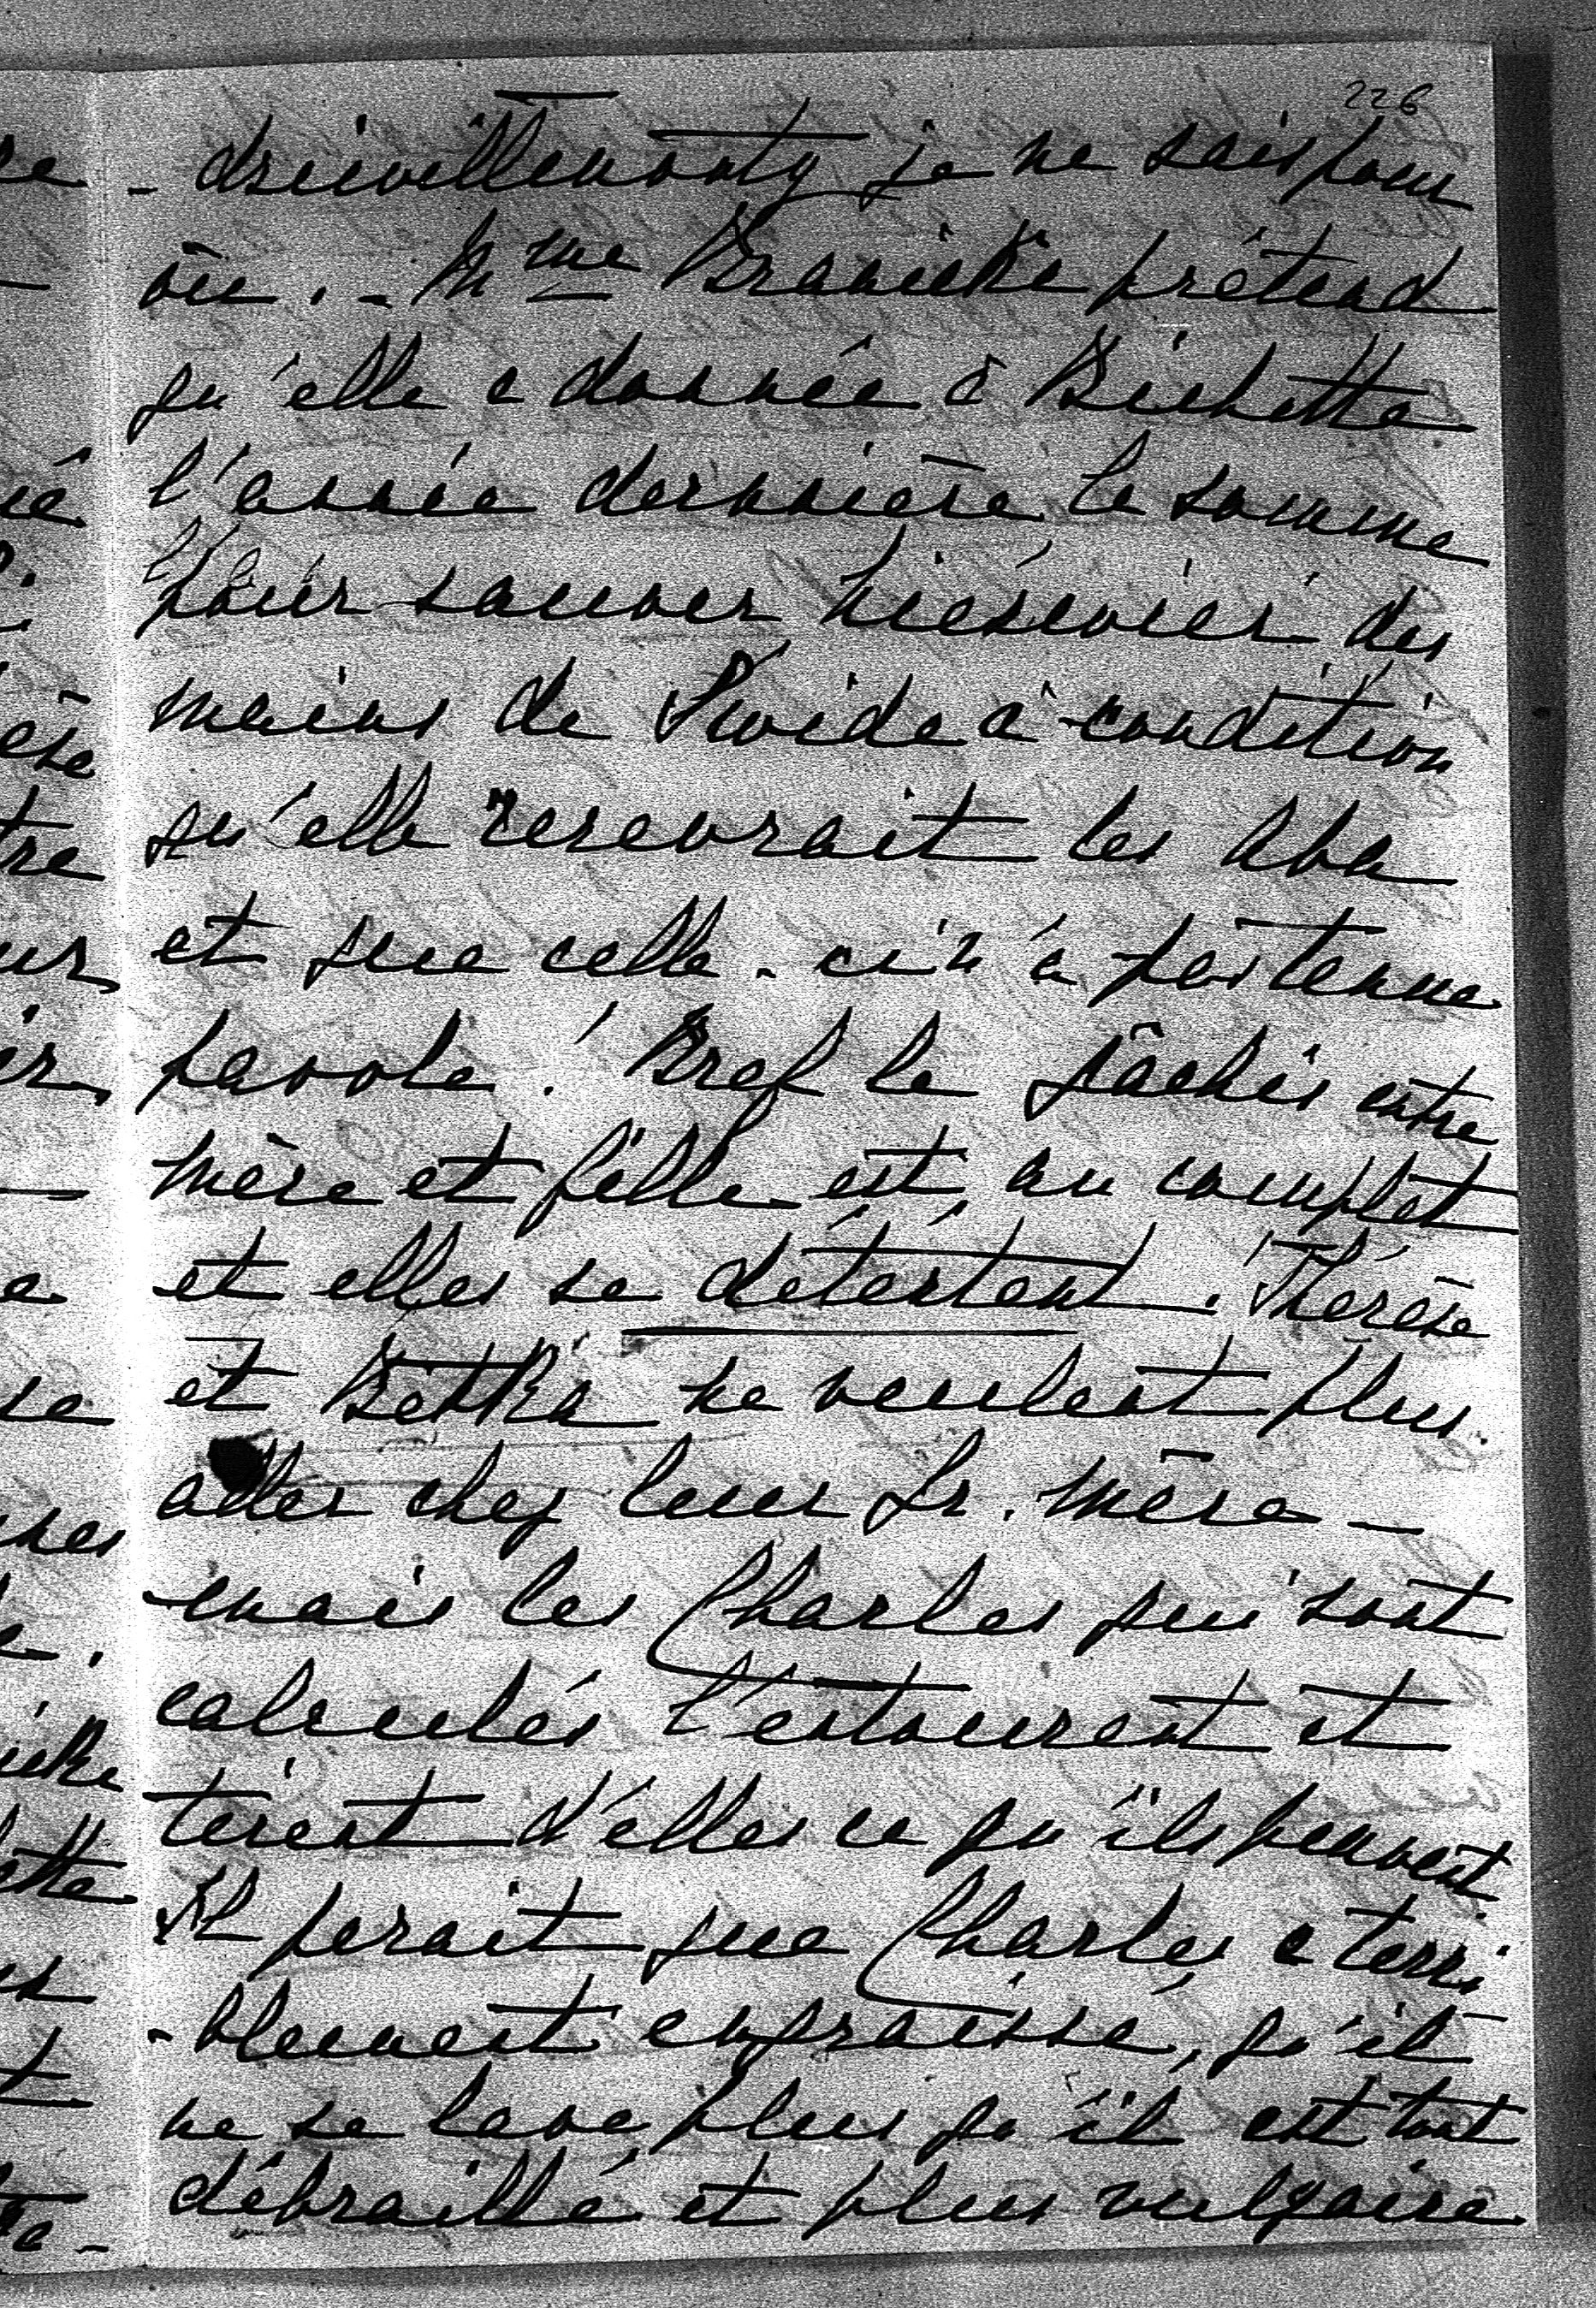 226
je ne sais pour
où. - Mme Branicka prétend
qu'elle a donnée à Bichette
l'année dernière la somme
pour sauver Niésvież des
mains de Swida à condition
qu'elle recevrait les Aba
et que celle-ci n'a pas tenue
parole! Bref le gâchis entre
mère et fille est au complet
et elles se détestent. Thérèse
et Betka ne veulent plus
aller chez leur Gr. mère -
mais les Charles qui sont
calculés l'entourent et
tirent d'elles ce qu'ils peuvent.
Il parait que Charles a terri
-blement engraissé, qu'il
ne se lave plus qu'il est tout
débraillé et plus vulgaire